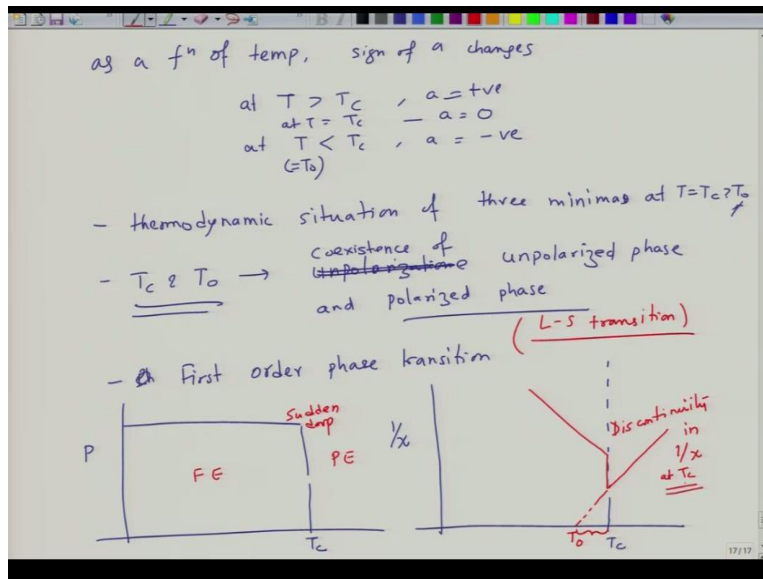 as a fⁿ of temp, sign of a changes
at T > Tc , a = +ve
at T = Tc — a = 0
at T < Tc , a = -ve
(=T₀)
- thermodynamic situation of three minimas at T=Tc>T₀
- Tc & T₀ → coexistence of unpolarized phase
and polarized phase
(L-S transition)
- First order phase transition
Sudden drop
P
FE
PE
Tc
1/x
Discontinuity
in
1/x
at Tc
T₀
Tc
17/17